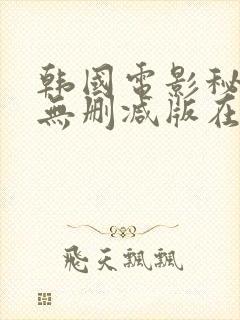 韩國電影秘
無删减版在
飛天飄飄